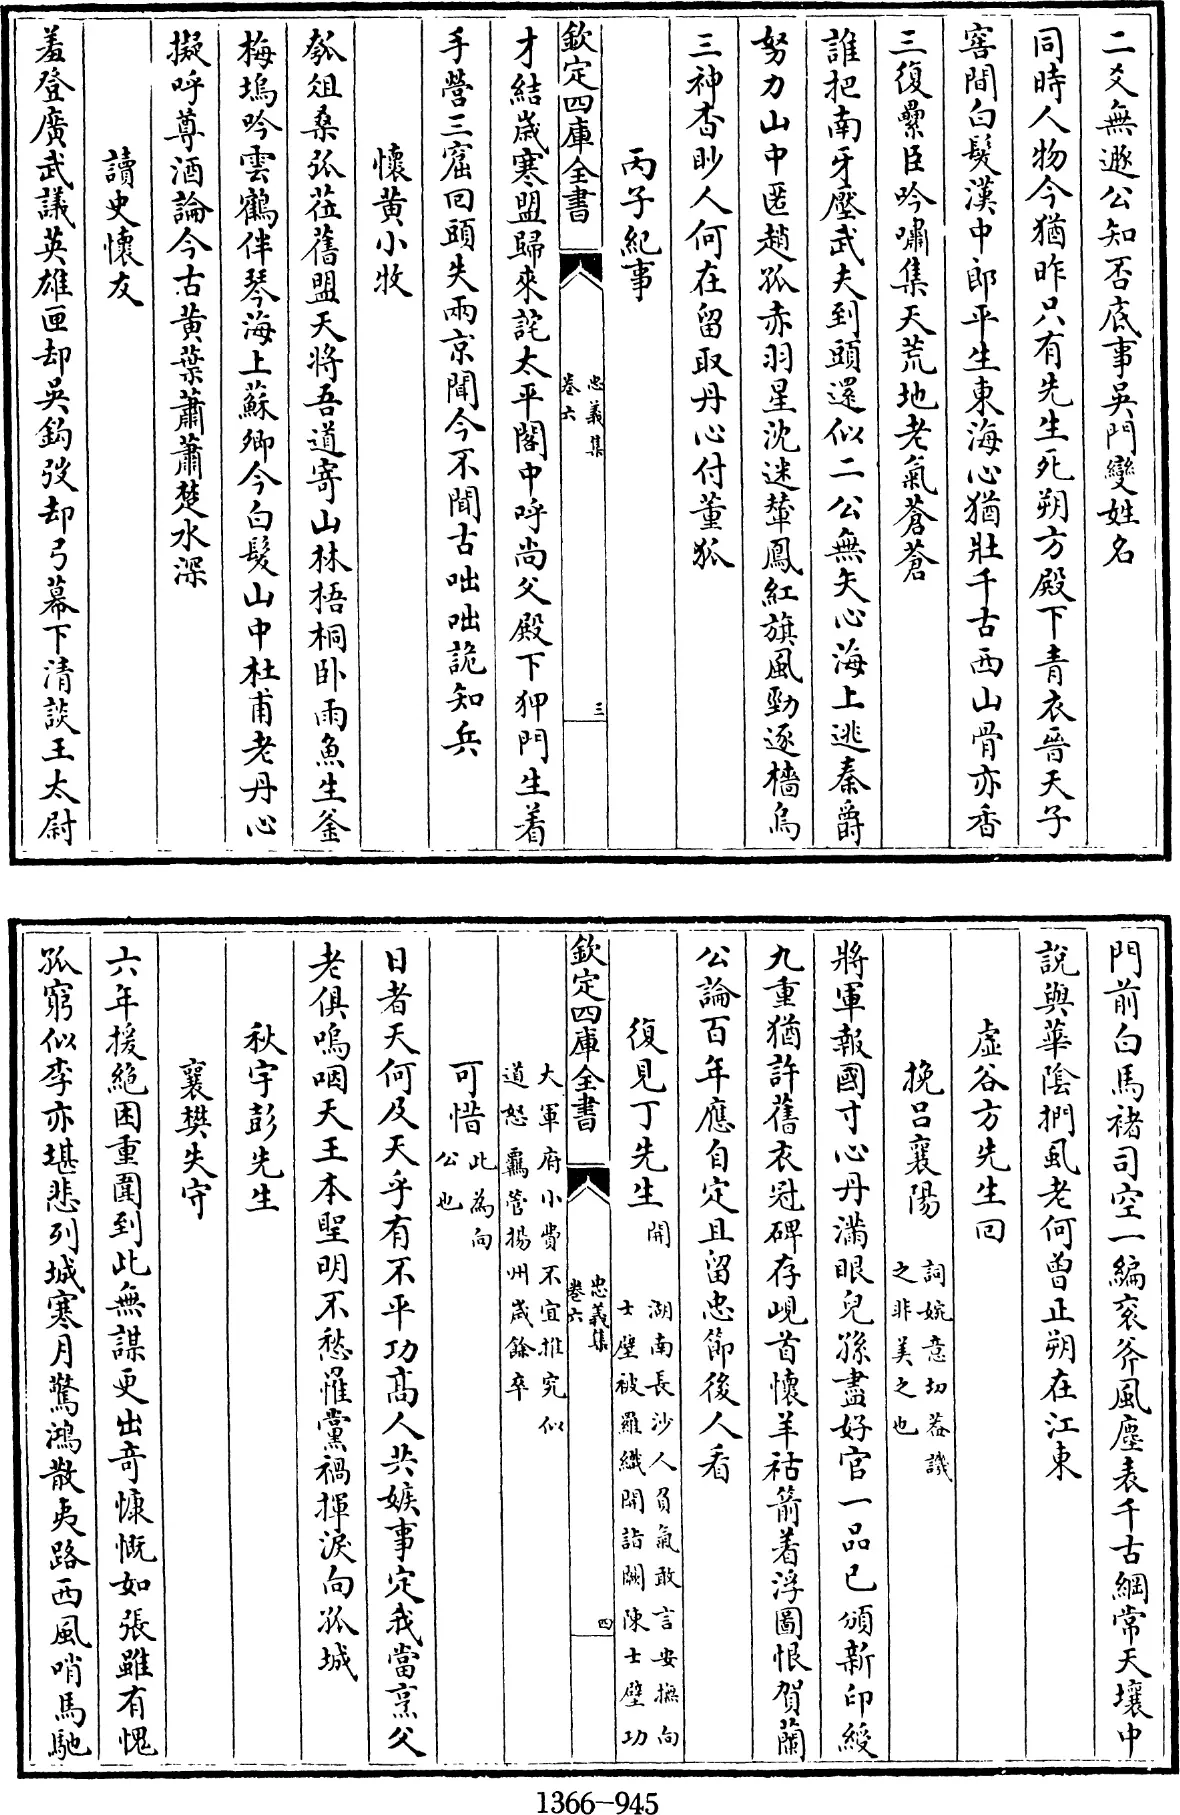 二爻無遯公知否底事吳門變姓名
同時人物今猶昨只有先生死朔方殿下青衣晉天子
窖間白髮漢中郎平生東海心猶壯千古西山骨亦香
三復纍臣吟嘯集天荒地老氣蒼蒼
誰把南牙壓武夫到頭還似二公無矢心海上逃秦爵
努力山中匿趙孤赤羽星沈迷輦鳳紅旗風勁逐檣烏
三神杳眇人何在留取丹心付董狐
丙子紀事
欽定四庫全書
忠義集
卷六
三
才結歲寒盟歸來詫太平閣中呼尚父殿下狎門生着
手營三窟回頭失兩京聞今不聞古咄咄詭知兵
懷黄小牧
瓠俎桑弧莅舊盟天將吾道寄山林梧桐卧雨魚生釜
梅塢吟雲鶴伴琴海上蘇卿今白髮山中杜甫老丹心
擬呼尊酒論今古黄葉蕭蕭楚水深
讀史懷友
羞登廣武議英雄匣却吳鈎弢却弓幕下清談王太尉
門前白馬褚司空一編衮斧風塵表千古綱常天壤中
説與華陰捫風老何曾正朔在江東
虛谷方先生回
挽吕襄陽
詞婉意切葢譏
之非美之也
將軍報國寸心丹滿眼兒孫盡好官一品已頒新印綬
九重猶許舊衣冠碑存峴首懷羊祜箭着浮圖恨賀蘭
公論百年應自定且留忠節後人看
復見丁先生
開
湖南長沙人負氣敢言安撫向
士璧被羅織開詣闕陳士璧功
欽定四庫全書
忠義集
卷六
四
大軍府小費不宜推究似
道怒羈管揚州歲餘卒
可惜
此為向
公也
日者天何及天乎有不平功髙人共嫉事定我當烹父
老俱嗚咽天王本聖明不愁罹黨禍揮淚向孤城
秋宇彭先生
襄樊失守
六年援絶困重圍到此無謀更出奇慷慨如張雖有愧
孤窮似李亦堪悲列城寒月驚鴻散夷路西風哨馬馳
1366-945